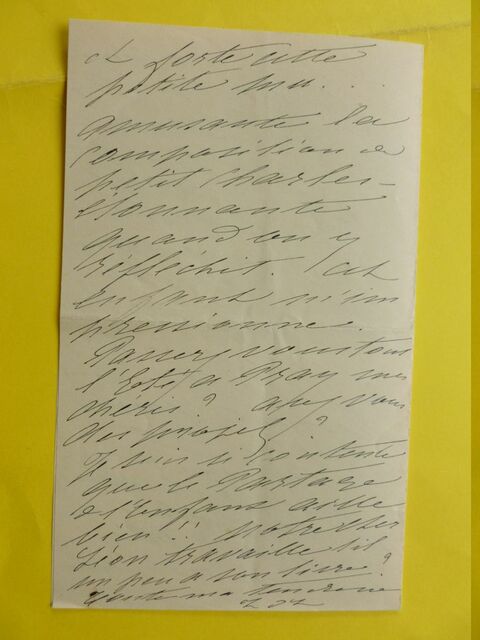 et forte cette
petite
amusante la
composition de
petit Charles -
Étonnante
quand on y
réfléchit. Cet
enfant m'im
pressionne.
Passez vous tous
l'Été à Pray mes
chéris? avez vous
des projets?
Je suis si contente
que le Partage
de l'Enfant aille
bien!! Notre cher
Léon travaille t'il
un peu à son livre?
Toute ma tendresse